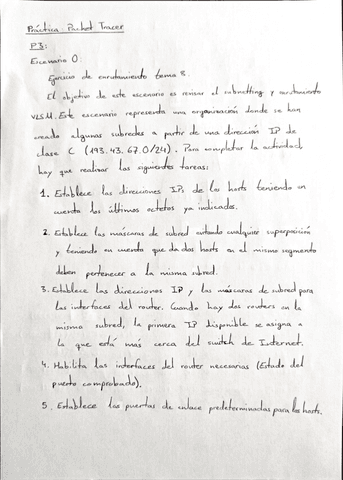 Práctica Packet Tracer
P3:
Escenario 0:
Ejercicio de enrutamiento tema 8.
El objetivo de este escenario es revisar el subnetting y enrutamiento
VLSM. Este escenario representa una organización donde se han
creado algunas subredes a partir de una dirección IP de
clase C (193.43.67.0/24). Para completar la actividad,
hay que realizar las siguientes tareas:
1. Establece las direcciones IPs de los hosts teniendo en
cuenta los últimos octetos ya indicados.
2. Establece las máscaras de subred evitando cualquier superposición
y teniendo en cuenta que dados hosts en el mismo segmento
deben pertenecer a la misma subred.
3. Establece las direcciones IP y las máscaras de subred para
las interfaces del router. Cuando hay dos routers en la
misma subred, la primera IP disponible se asigna a
la que está más cerca del switch de Internet.
4. Habilita las interfaces del router necesarias (Estado del
puerto comprobado).
5. Establece las puertas de enlace predeterminadas para los hosts.